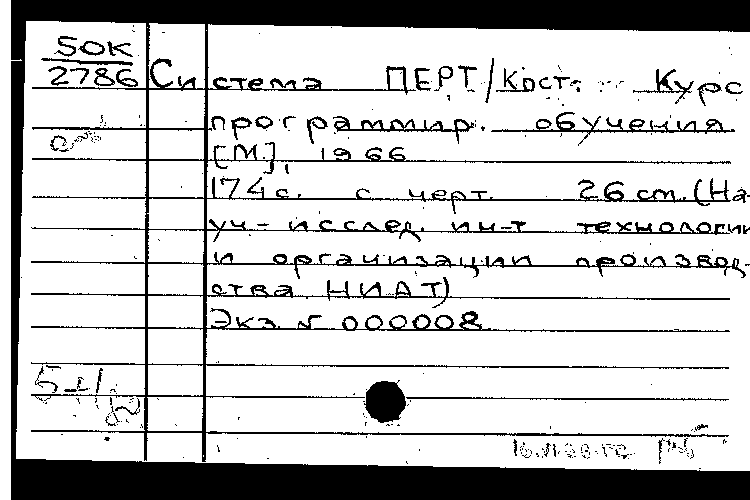 50К
2786
Система ПЕРТ/Кост. Курс
программир. обучения.
[М], 1966
174 с. с черт. 26 cm. (На-
уч-исслед. ин-т технологии
и организации производ-
ства НИАТ)
Экз. № 000008
5+1/